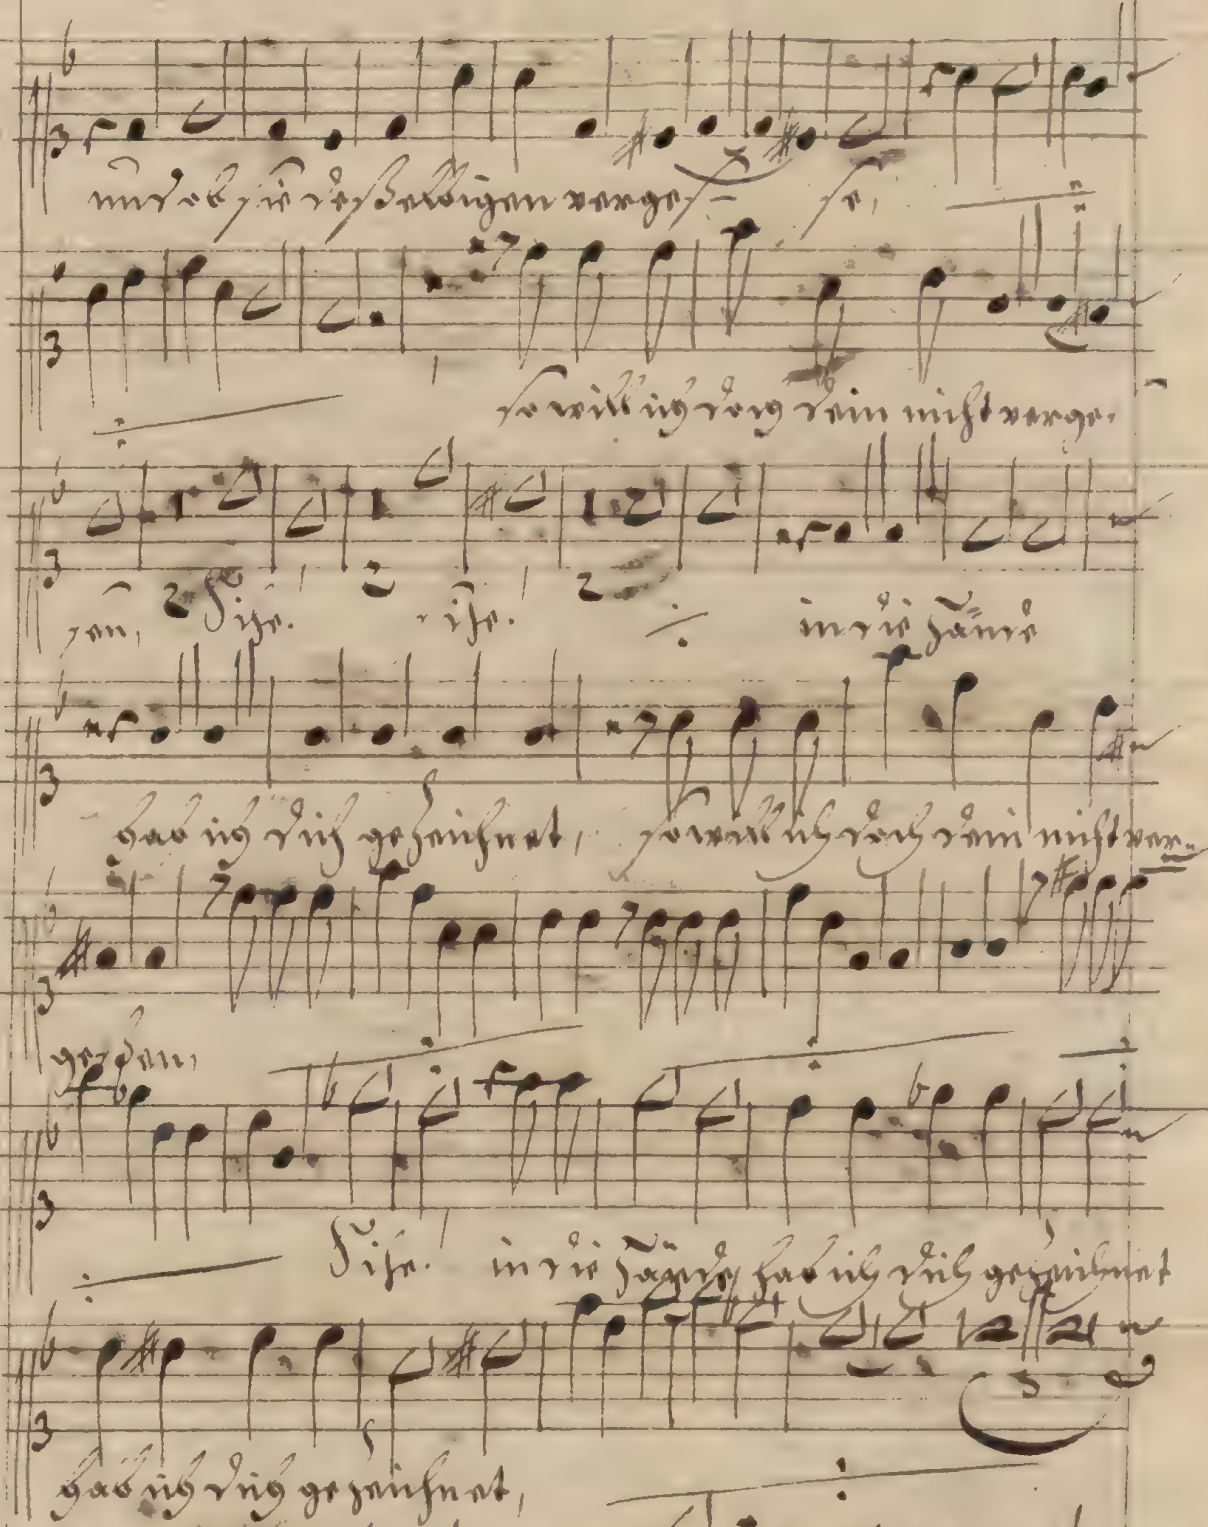 und ob sie deßelbigen verges- se,
so will ich doch dein nicht verge-
sen, 2 Sihe. 2 sihe. 2 in die Hände
hab ich dich gezeichnet, so will ich doch dein nicht ver-
geßen,
Sihe. in die Hände hab ich dich gezeichnet
hab ich dich gezeichnet,